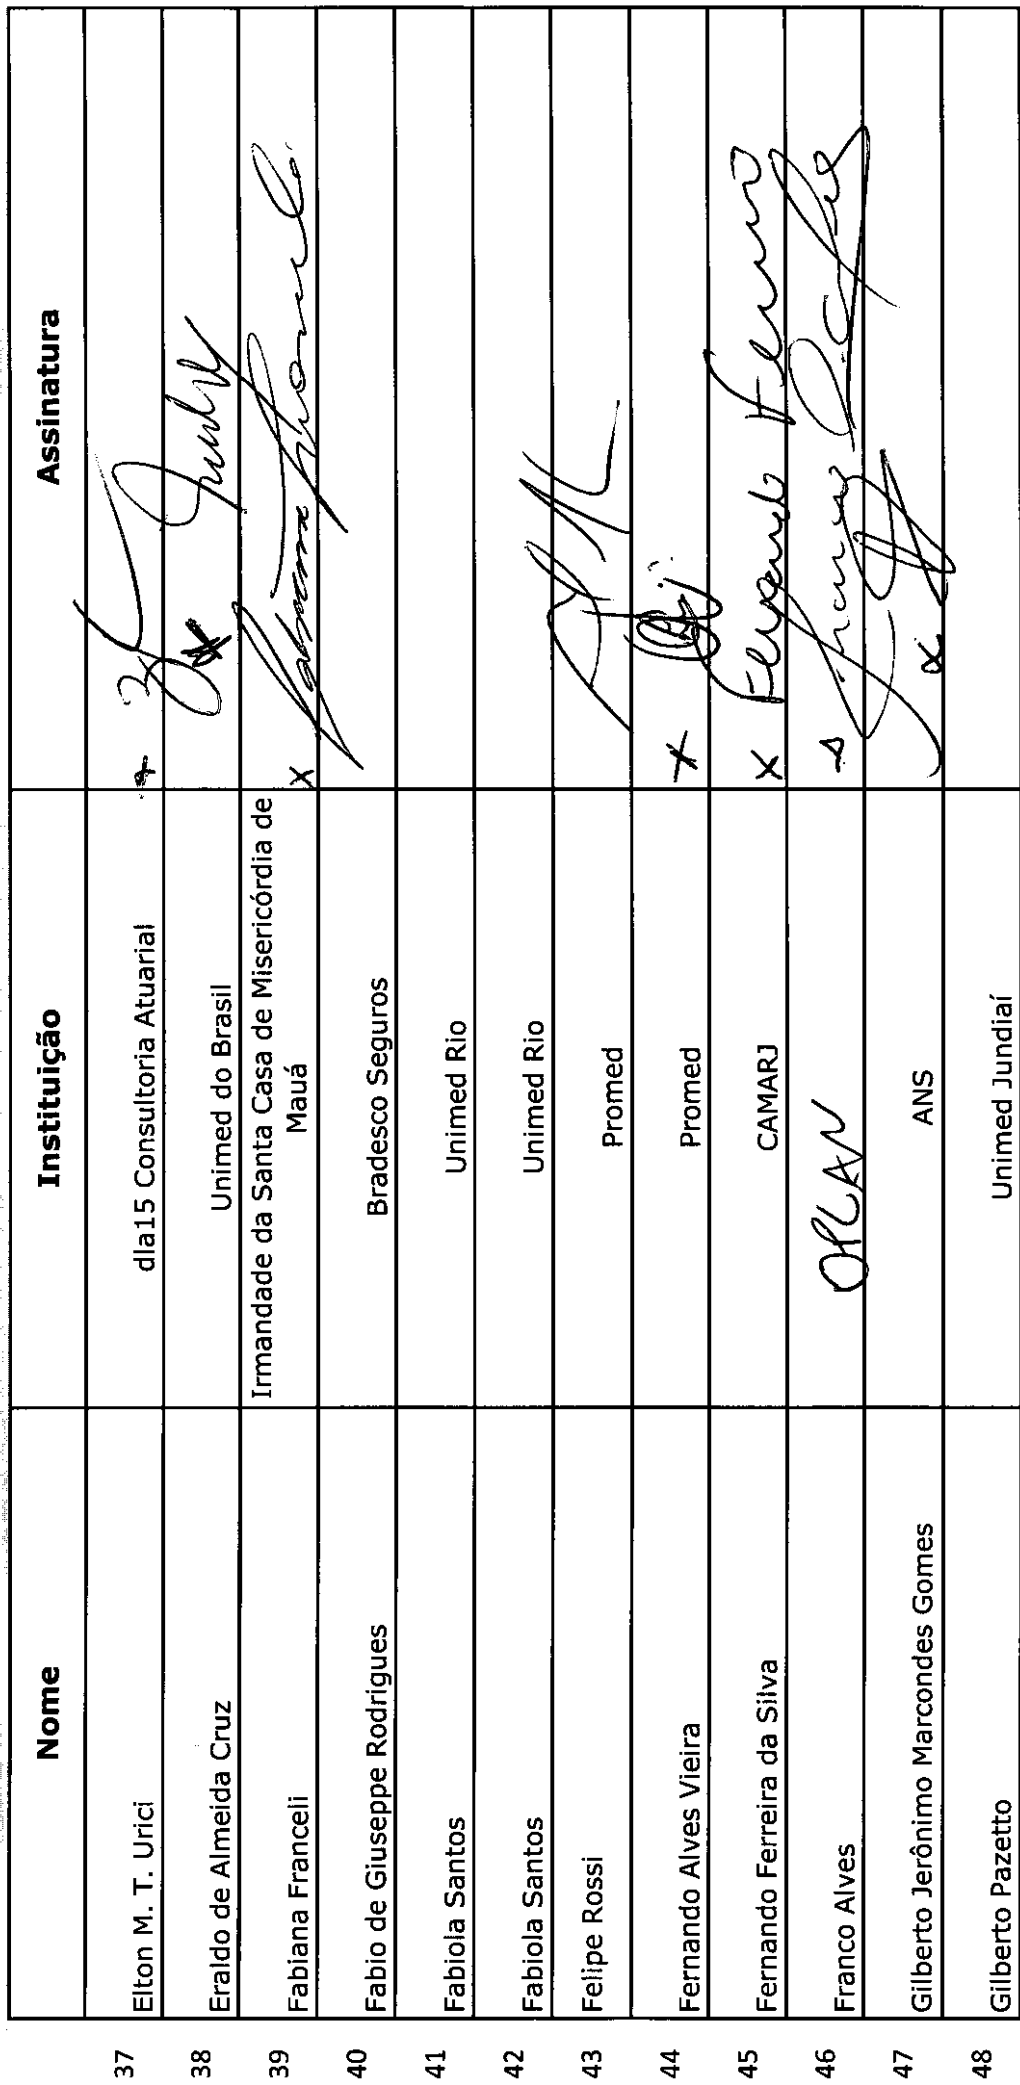 Nome Instituição Assinatura
37 Elton M. T. Urici dla15 Consultoria Atuarial
38 Eraldo de Almeida Cruz Unimed do Brasil
39 Fabiana Franceli Irmandade da Santa Casa de Misericórdia de
Mauá x
40 Fabio de Giuseppe Rodrigues Bradesco Seguros
41 Fabiola Santos Unimed Rio
42 Fabiola Santos Unimed Rio
43 Felipe Rossi Promed
44 Fernando Alves Vieira Promed x
45 Fernando Ferreira da Silva CAMARJ x Fernando
46 Franco Alves OPLAN
47 Gilberto Jerônimo Marcondes Gomes ANS x
48 Gilberto Pazetto Unimed Jundiaí